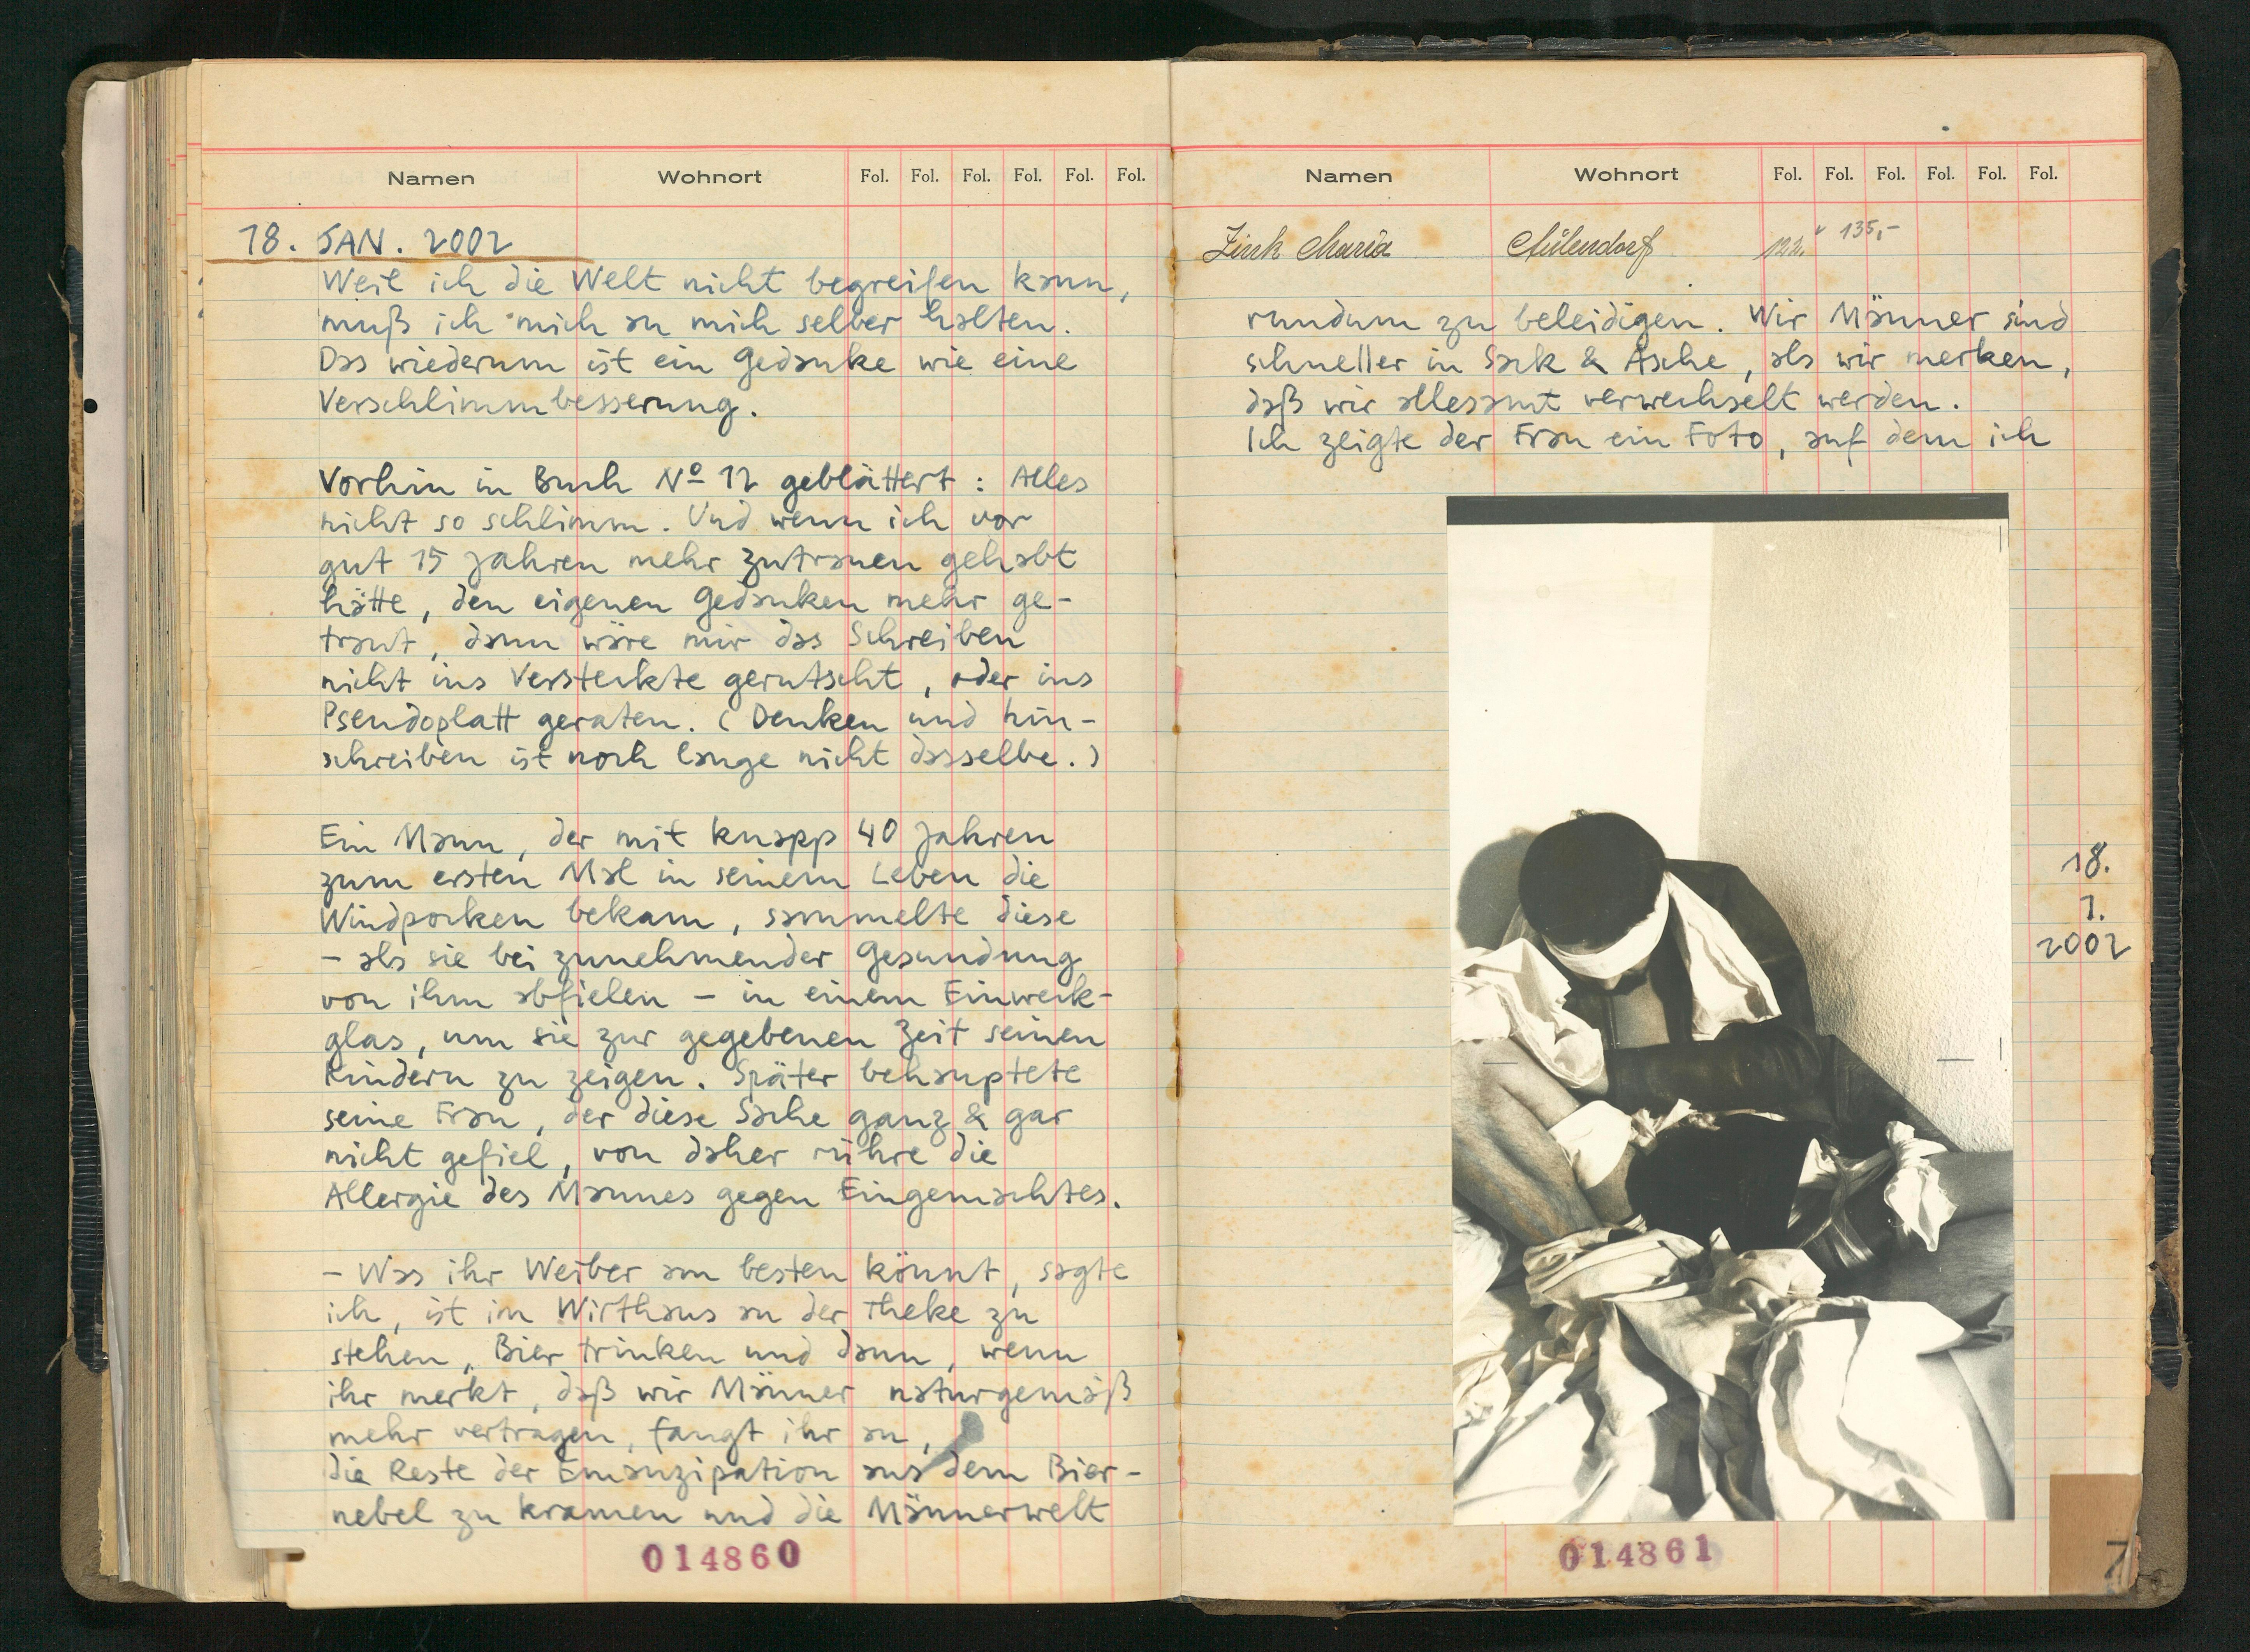 Namen Wohnort Fol. Fol. Fol. Fol. Fol. Fol.
18. JAN. 2002
Weil ich die Welt nicht begreifen kann,
muß ich mich an mich selber halten.
Das wiederum ist ein Gedanke wie eine
Verschlimmbesserung.
Vorhin in Buch Nº 12 geblättert: Alles
nicht so schlimm. Und wenn ich vor
gut 15 Jahren mehr Zutrauen gehabt
hätte, den eigenen Gedanken mehr ge-
traut, dann wäre mir das Schreiben
nicht ins Versteckte gerutscht, oder ins
Pseudoplatt geraten. (Denken und hin-
schreiben ist noch lange nicht dasselbe.)
Ein Mann, der mit knapp 40 Jahren
zum ersten Mal in seinem Leben die
Windpocken bekam, sammelte diese
- als sie bei zunehmender Gesundung
von ihm abfielen - in einem Einweck-
glas, um sie zur gegebenen Zeit seinen
Kindern zu zeigen. Später behauptete
seine Frau, der diese Sache ganz & gar
nicht gefiel, von daher rühre die
Allergie des Mannes gegen Eingemachtes.
- Was ihr Weiber am besten könnt, sagte
ich, ist im Wirthaus an der Theke zu
stehen, Bier trinken und dann, wenn
ihr merkt, daß wir Männer naturgemäß
mehr vertragen, fangt ihr an,
die Reste der Emanzipation aus dem Bier-
nebel zu kramen und die Männerwelt
014860
Namen Wohnort Fol. Fol. Fol. Fol. Fol. Fol.
Zink Maria 135,-
rundum zu beleidigen. Wir Männer sind
schneller in Sack & Asche, als wir merken,
daß wir allesamt verwechselt werden.
Ich zeigte der Frau ein Foto, auf dem ich
18.
1.
2002
014861
7